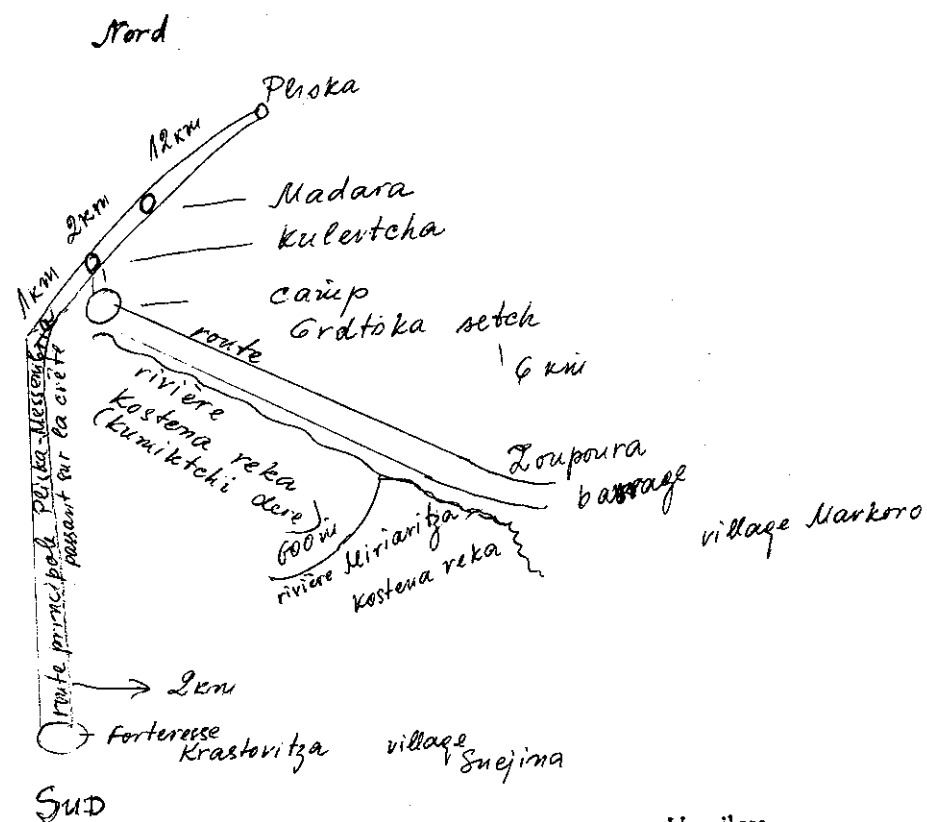 Nord
Pliska
12 km
Madara
2 km
Kulevtcha
1 km
camp
Grdtska setch
route
6 km
rivière
Kostena reka
(Kumiktchi dere)
Loupoura
barrage
village Markovo
600 m
rivière Miriaritza
Kostena reka
route principale Pliska-Messembria
passant sur la crête
2 km
Forteresse
Krastovitza
village
Snejina
SUD